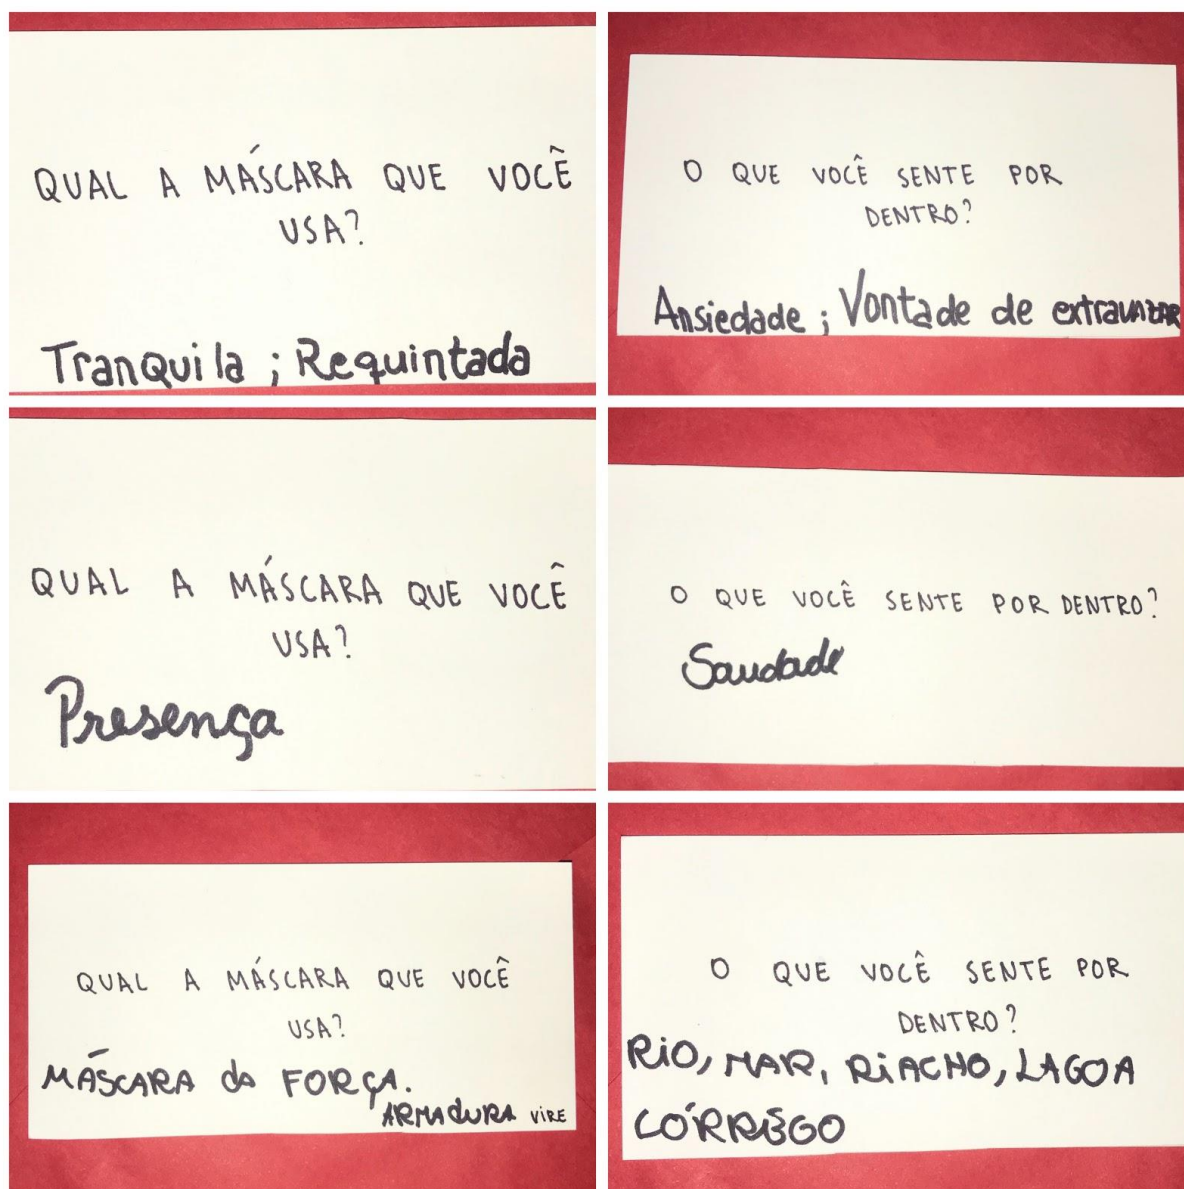 QUAL A MÁSCARA QUE VOCÊ
USA?
Tranquila ; Requintada
O QUE VOCÊ SENTE POR
DENTRO?
Ansiedade ; Vontade de extravazar
QUAL A MÁSCARA QUE VOCÊ
USA?
Presença
O QUE VOCÊ SENTE POR DENTRO?
Saudade
QUAL A MÁSCARA QUE VOCÊ
USA?
MÁSCARA da FORÇA.
ARMADURA VIRE
O QUE VOCÊ SENTE POR
DENTRO?
RIO, MAR, RIACHO, LAGOA
CÓRREGO